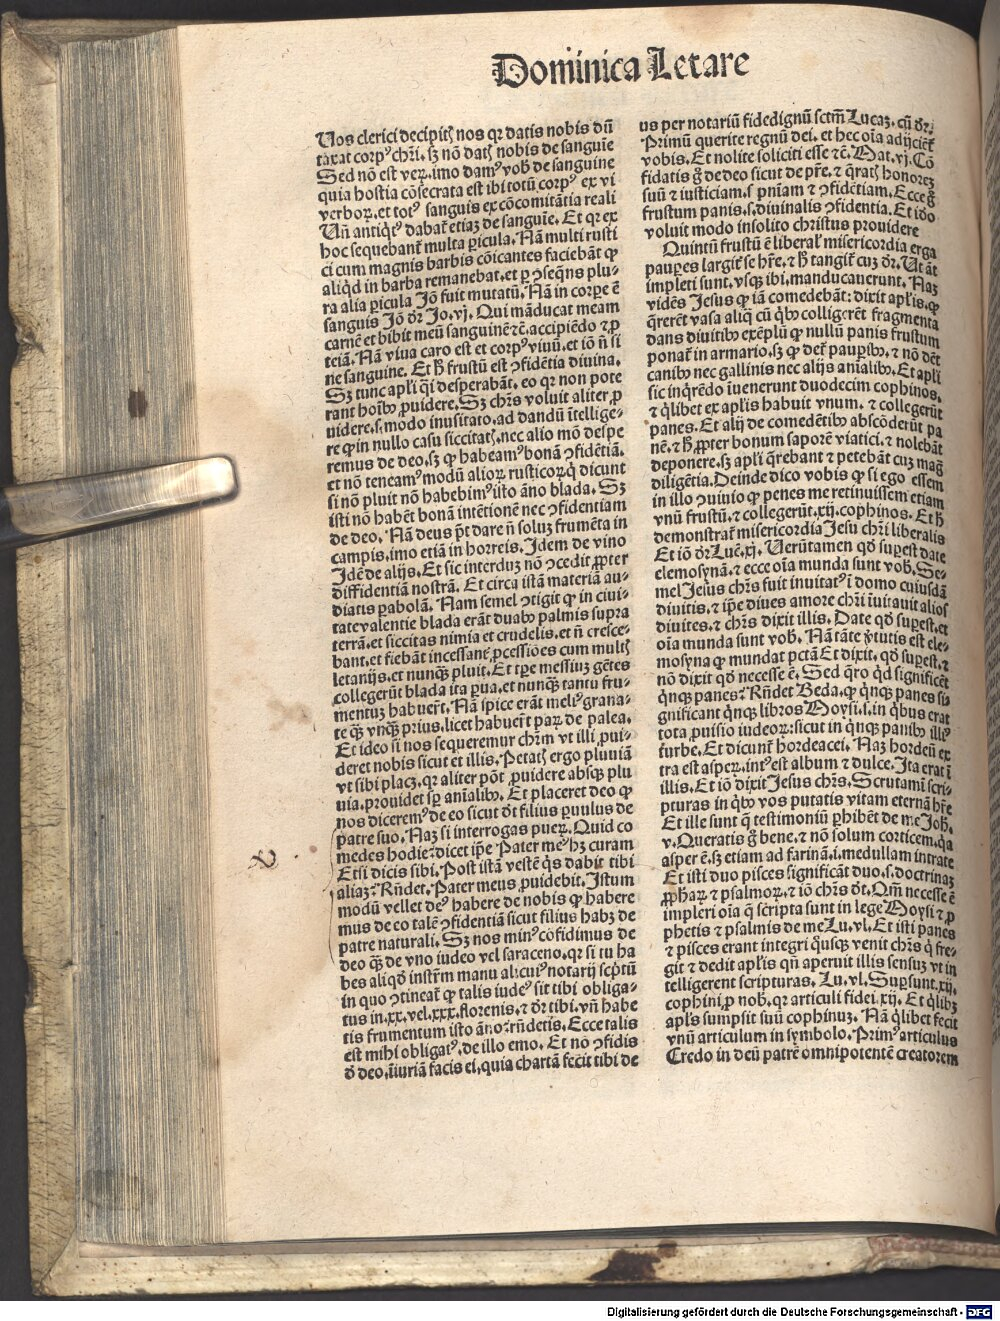 Dominica Letare
Uos clerici decipitꝭ nos qꝛ datis nobis dū
taxat corpꝰ chꝛi. sꝫ nō datꝭ nobis de sanguīe
Sed nō est veꝝ. imo damꝰ vob̄ de sanguine
quia hostia cōsecrata est ibi totū corpꝰ ex vi
verboꝝ. et totꝰ sanguis ex cōcomitātia reali
Uñ antiq̇tꝰ dabat̄ etiaꝫ de sanguīe. Et qꝛ ex
hoc sequebant̄ multa ꝑicula. Nā multi rusti
ci cum magnis barbis cōicantes faciebāt ꝙ
aliq̇d in barba remanebat. et ꝑ ꝯseq̄ns plu⸗
ra alia ꝑicula Jō fuit mutatū. Nā in corpe ē
sanguis Jō dꝛ Jo. vj. Qui māducat meam
carnē et bibit meū sanguinē ⁊c̄. accipiēdo ⁊ ꝓ
teiā. Nā viua caro est et corpꝰ viuū. et iō ñ si
ne sanguine. Et h̄ frustū est ꝯfidētia diuina.
Sꝫ tunc apl̄i q̇i desperabāt. eo qꝛ non pote
rant hoībꝰ ꝓuidere. Sꝫ chꝛs voluit aliter ꝓ
uidere. s. modo inusitato. ad dandū ītellige⸗
re ꝙ in nullo casu siccitatꝭ. nec alio mō despe
remus de deo. sꝫ ꝙ habeamꝰ bonā ꝯfidētiā.
et nō teneamꝰ modū alioꝝ rusticoꝝ q̇ dicunt
si nō pluit nō habebimꝰ isto āno blada. Sꝫ
isti nō habēt bonā intētionē nec ꝯfidentiam
de deo. Nā deus pōt dare ñ soluꝫ frumēta in
campis. imo etiā in horreis. Idem de vino
Idē de alijs. Et sic interduꝫ nō ꝯcedit ꝓpter
diffidentiā nostrā. Et circa istā materiā au⸗
diatis ꝑabolā. Nam semel ꝯtigit ꝙ in ciui⸗
tate valentie blada erāt duabꝰ palmis supra
terrā. et siccitas nimia et crudelis. et ñ cresce⸗
bant. et fiebāt incessant̄ ꝓcessiōes cum multꝭ
letanijs. et nunqꝫ pluit. Et tpe messiuꝫ gētes
collegerūt blada ita ꝑua. et nunqꝫ tantu fru⸗
mentuꝫ habuer̄t. Nā spice erāt melꝰ grana⸗
te qꝫ vnqꝫ prius. licet habuer̄t paꝝ de palea.
Et ideo si nos sequeremur chꝛm vt illi ꝓui⸗
deret nobis sicut et illis. Petatꝭ ergo pluuiā
vt sibi placꝫ. qꝛ aliter pōt ꝓuidere absqꝫ plu
uia. ꝓuidet sp̄ aīalibꝰ. Et placeret deo ꝙ
nos diceremꝰ de eo sicut dt̄ filius ꝑuulus de
patre suo. Naꝫ si interrogas pueꝝ. Quid co
medes hodie? dicet ipe Pater meꝰ hꝫ curam
Etsi dicis sibi. Post istā vestē q̇s dabit tibi
aliaꝫ? Rñdet. Pater meus ꝓuidebit. Istum
modū vellet deꝰ habere de nobis ꝙ habere
mus de eo talē ꝯfidentiā sicut filius habꝫ de
patre naturali. Sꝫ nos minꝰ cōfidimus de
deo qꝫ de vno iudeo vel saraceno. qꝛ si tu ha
bes aliqd̄ instr̄m manu alicuiꝰ notarij sc̄ptū
in quo ꝯtineat̄ ꝙ talis iudeꝰ sit tibi obliga⸗
tus in .xx. vel .xxx. florenis. ⁊ dꝛ tibi. vñ habe
tis frumentum isto āno? rñdetis. Ecce talis
est mihi obligatꝰ. de illo emo. Et nō ꝯfidis
d̄ deo. īiuriā facis ei. quia chartā fecit tibi de
us per notariū fidedignū sctm̄ Lucaꝫ. cū dꝛ.
Primū querite regnū dei. et hec oīa adijciēt̄
vobis. Et nolite soliciti esse ⁊c̄. Mat. vj. Cō
fidatis g̊ de deo sicut de pr̄e. ⁊ q̄ratꝭ honoreꝫ
suū ⁊ iusticiam. s. pn̄iam ⁊ ꝯfidētiam. Ecce g̊
frustum panis. s. diuinalis ꝯfidentia. Et iō
voluit modo insolito christus prouidere
Quintū frustū ē liberal̄ misericordia erga
paupes largit̄ se hr̄e. ⁊ h̄ tangit̄ cuꝫ dꝛ. Ut āt
impleti sunt. vsqꝫ ibi. manducauerunt. Naꝫ
vidēs Jesus ꝙ iā comedebāt: dixit apl̄is. ꝙ
q̄rerēt vasa aliq̄ cū q̇bꝰ colligerēt fragmenta
dans diuitibꝰ exēplū ꝙ nullū panis frustum
ponat̄ in armario. sꝫ ꝙ det̄ paupibꝰ. ⁊ nō dēt
canibꝰ nec gallinis nec alijs aīalibꝰ. Et apl̄i
sic inq̇rēdo iuenerunt duodecim cophinos.
⁊ q̇libet ex apl̄is habuit vnum. ⁊ collegerūt
panes. Et alij de comedētibꝰ abscōderūt pa
nē. ⁊ h̄ ꝓpter bonum saporē viatici. ⁊ nolebāt
deponere. sꝫ apl̄i q̄rebant ⁊ petebāt cuꝫ maḡ
diligētia. Deinde dico vobis ꝙ si ego essem
in illo ꝯuiuio ꝙ penes me retinuissem etiam
vnū frustū. ⁊ collegerūt .xij. cophinos. Et h̄
demonstrat̄ misericordia Jesu chꝛi liberalis
Et iō dꝛ Luē. xj. Uerūtamen qd̄ supest date
elemosynā. ⁊ ecce oīa munda sunt vob̄. Se⸗
mel Jesus chꝛs fuit inuitatꝰ ī domo cuiusdā
diuitis. ⁊ ipe diues amore chꝛi īuitauit alios
diuites. ⁊ chꝛs dixit illis. Date qd̄ supest. et
oīa munda sunt vob̄. Nā tāte ꝟtutis est ele⸗
mosyna ꝙ mundat pctā Et dixit. qd̄ supest. ⁊
nō dixit qd̄ necesse ē. Sed q̄ro q̇d significēt
q̇nqꝫ panes? Rñdet Beda. ꝙ q̇nqꝫ panes si⸗
gnificant q̇nqꝫ libros Moysi. i. in q̇bus erat
tota ꝓuisio iudeoꝝ: sicut in q̇nqꝫ panibꝰ illiꝰ
turbe. Et dicunt̄ hordeacei. Naꝫ hordeū ex
tra est aspeꝝ. intꝰ est album ⁊ dulce. Ita erat ī
illis. Et iō dixit Jesus chꝛs. Scrutamī scri⸗
pturas in q̇bꝰ vos putatis vitam eternā hr̄e
Et ille sunt q̄ testimoniū ꝑhibēt de me Joh̄.
v. Queratis g̊ bene. ⁊ nō solum corticem. q̇a
asper ē. sꝫ etiam ad farinā. i. medullam intrate
Et isti duo pisces significāt duo. s. doctrinaꝫ
ꝓphaꝝ ⁊ psalmoꝝ. ⁊ iō chꝛs dt̄. Qm̄ necesse ē
impleri oīa q̄ scripta sunt in lege Moysi ⁊ ꝓ
phetis ⁊ psalmis de me Lu. vl. Et isti panes
⁊ pisces erant integri q̇usqꝫ venit chꝛs q̇ fre⸗
git ⁊ dedit apl̄is qn̄ aperuit illis sensuꝫ vt in
telligerent scripturas. Lu. vl. Supsunt .xij.
cophini ꝓ nob̄. qꝛ articuli fidei .xij. Et q̇libꝫ
apl̄s sumpsit suū cophinuꝫ. Nā q̇libet fecit
vnū articulum in symbolo. Primꝰ articulus
Credo in deū patrē omnipotentē creatorem
Digitalisierung gefördert durch die Deutsche Forschungsgemeinschaft - DFG